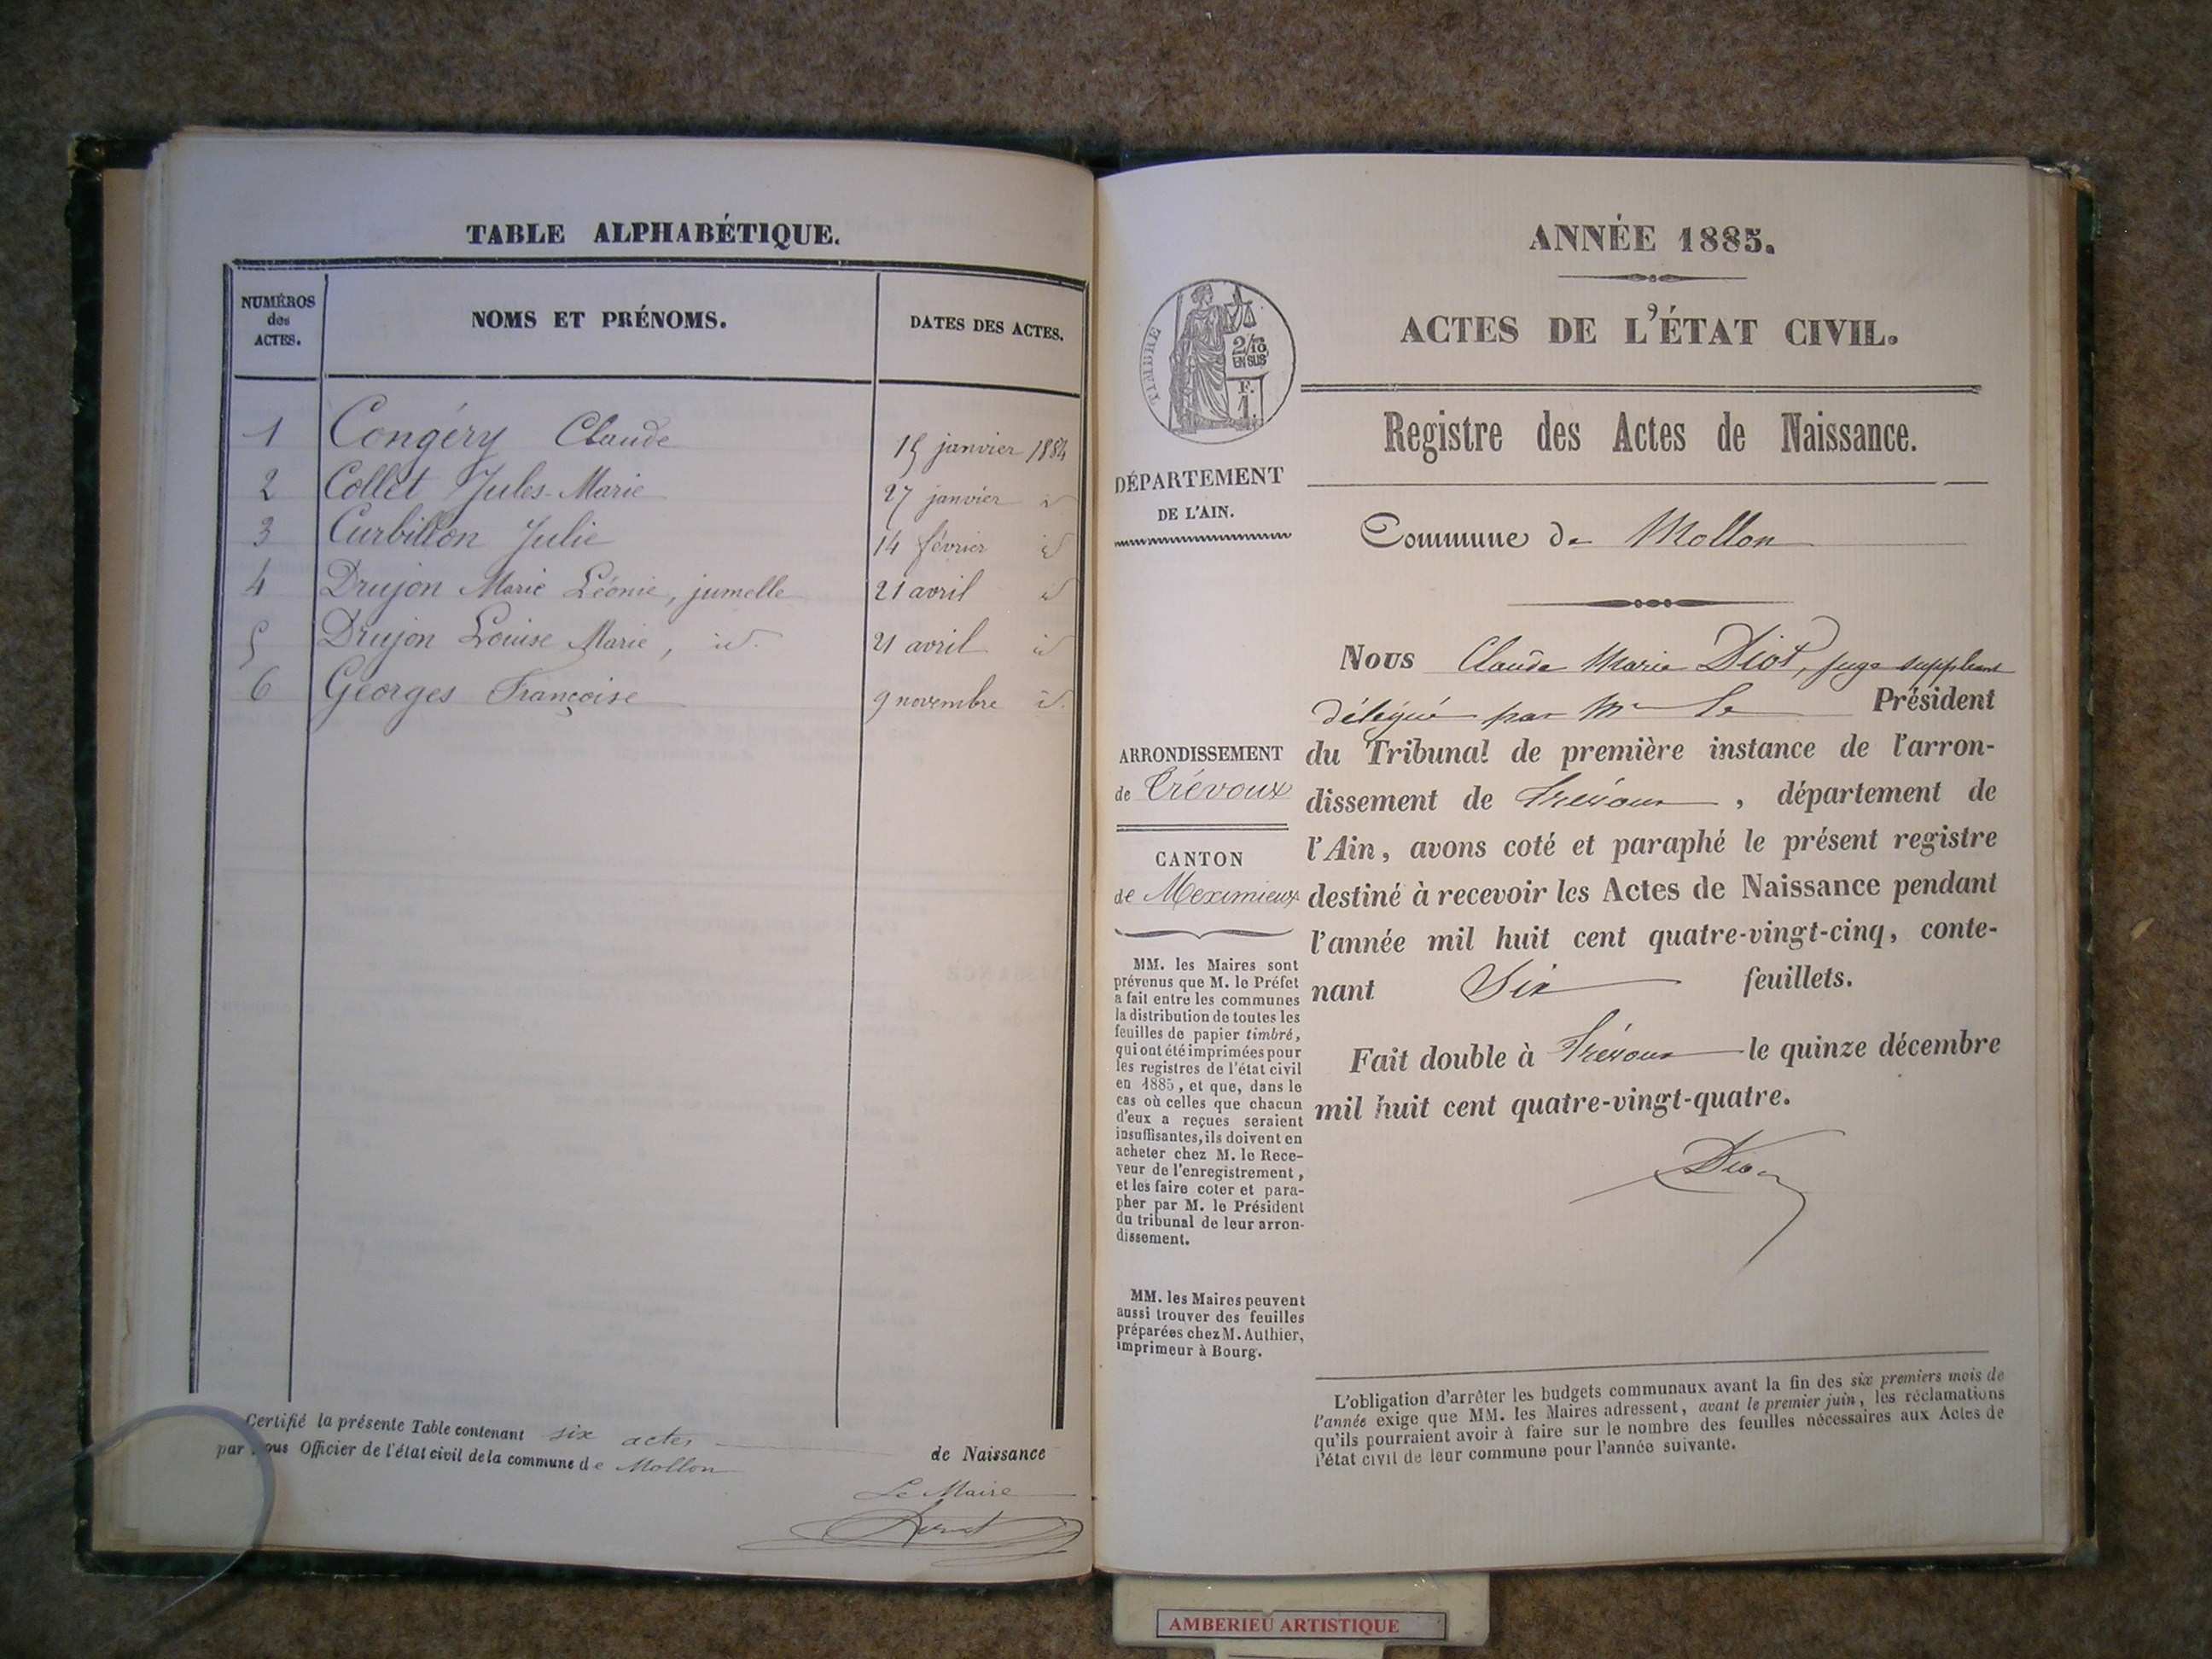 TABLE ALPHABÉTIQUE.
NUMÉROS
des
ACTES.
NOMS ET PRÉNOMS.
DATES DES ACTES.
1 Congéry Claude 15 janvier 1884
2 Collet Jules-Marie 27 janvier id
3 Curbillon Julie 14 février id
4 Drujon Marie Léonie, jumelle 21 avril id
5 Drujon Louise Marie, id. 21 avril id
6 Georges Françoise 9 novembre id.
Certifié la présente Table contenant six actes de Naissance
par Nous Officier de l'état civil de la commune de Mollon
Le Maire
ANNÉE 1885.
ACTES DE L'ÉTAT CIVIL.
TIMBRE
2/10
EN SUS
F.
1.
Registre des Actes de Naissance.
DÉPARTEMENT
DE L'AIN.
Commune de Mollon
Nous Claude Marie Diot, juge suppléant
délégué par Mr le Président
du Tribunal de première instance de l'arron-
dissement de Trévoux, département de
l'Ain, avons coté et paraphé le présent registre
destiné à recevoir les Actes de Naissance pendant
l'année mil huit cent quatre-vingt-cinq, conte-
nant Six feuillets.
Fait double à Trévoux le quinze décembre
mil huit cent quatre-vingt-quatre.
Diot
ARRONDISSEMENT
de Trévoux
CANTON
de Meximieux
MM. les Maires sont
prévenus que M. le Préfet
a fait entre les communes
la distribution de toutes les
feuilles de papier timbré,
qui ont été imprimées pour
les registres de l'état civil
en 1885, et que, dans le
cas où celles que chacun
d'eux a reçues seraient
insuffisantes, ils doivent en
acheter chez M. le Rece-
veur de l'enregistrement,
et les faire coter et para-
pher par M. le Président
du tribunal de leur arron-
dissement.
MM. les Maires peuvent
aussi trouver des feuilles
préparées chez M. Authier,
imprimeur à Bourg.
L'obligation d'arrêter les budgets communaux avant la fin des six premiers mois de
l'année exige que MM. les Maires adressent, avant le premier juin, les réclamations
qu'ils pourraient avoir à faire sur le nombre des feuilles nécessaires aux Actes de
l'état civil de leur commune pour l'année suivante.
AMBERIEU ARTISTIQUE